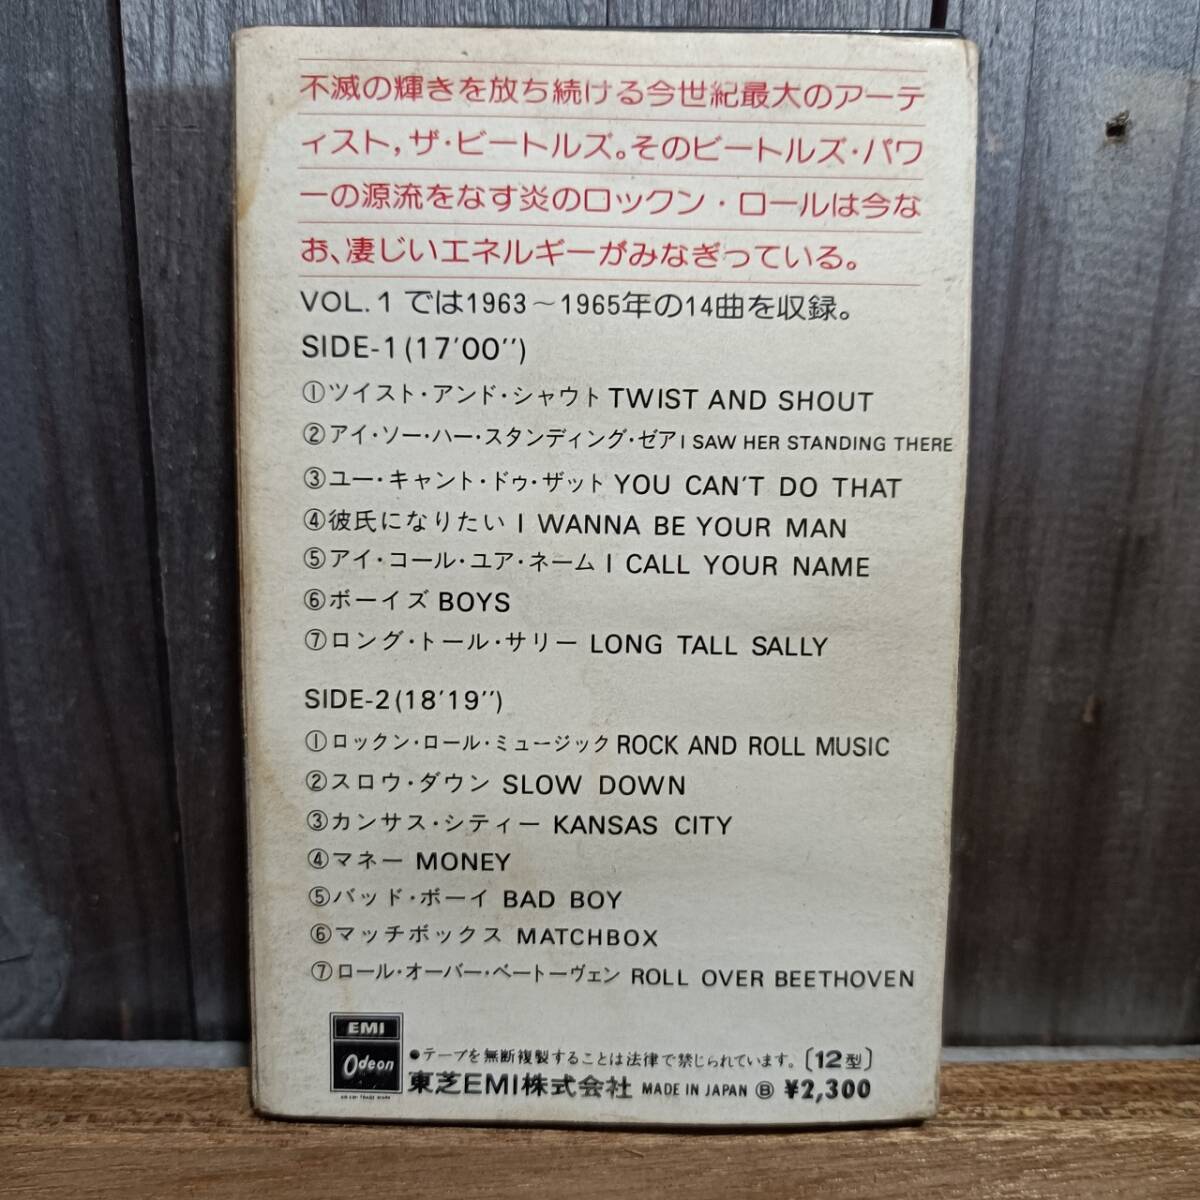 不滅の輝きを放ち続ける今世紀最大のアーテ
ィスト,ザ・ビートルズ。そのビートルズ・パワ
ーの源流をなす炎のロックン・ロールは今な
お、凄じいエネルギーがみなぎっている。
VOL.1 では1963〜1965年の14曲を収録。
SIDE-1(17′00″)
①ツイスト・アンド・シャウト TWIST AND SHOUT
②アイ・ソー・ハー・スタンディング・ゼア I SAW HER STANDING THERE
③ユー・キャント・ドゥ・ザット YOU CAN'T DO THAT
④彼氏になりたい I WANNA BE YOUR MAN
⑤アイ・コール・ユア・ネーム I CALL YOUR NAME
⑥ボーイズ BOYS
⑦ロング・トール・サリー LONG TALL SALLY
SIDE-2(18′19″)
①ロックン・ロール・ミュージック ROCK AND ROLL MUSIC
②スロウ・ダウン SLOW DOWN
③カンサス・シティー KANSAS CITY
④マネー MONEY
⑤バッド・ボーイ BAD BOY
⑥マッチボックス MATCHBOX
⑦ロール・オーバー・ベートーヴェン ROLL OVER BEETHOVEN
EMI
Odeon
●テープを無断複製することは法律で禁じられています。〔12型〕
東芝EMI株式会社 MADE IN JAPAN Ⓑ ¥2,300